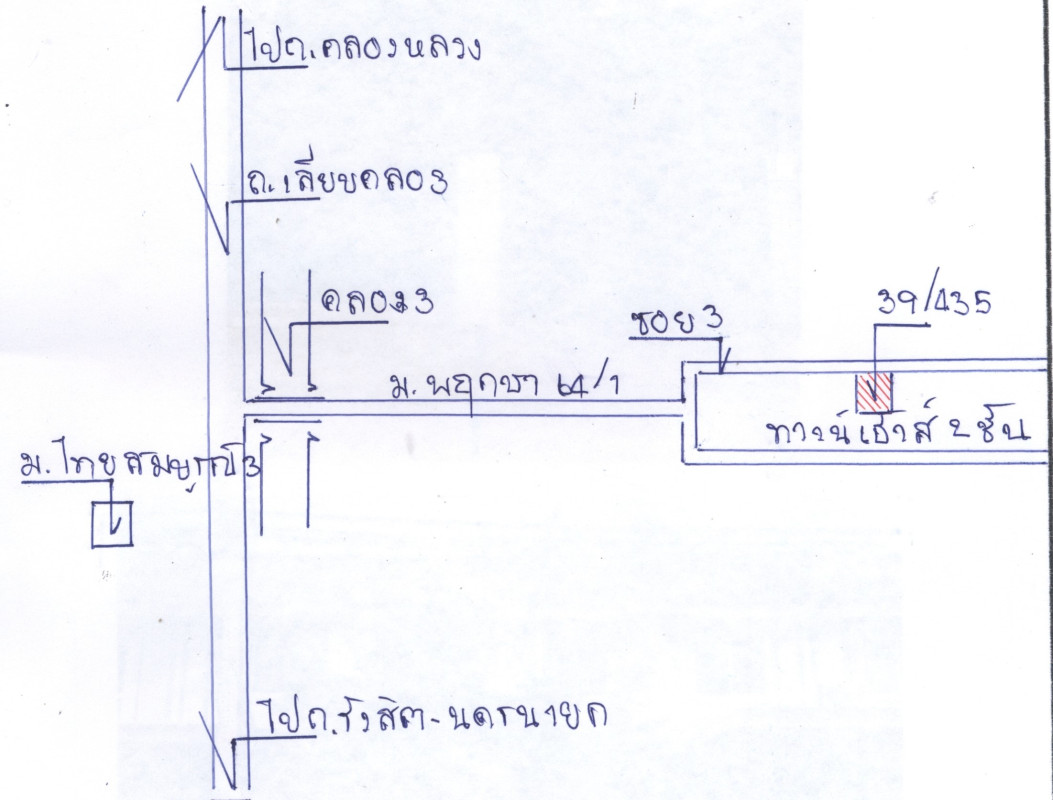 ไปถ.คลองหลวง
ถ.เลียบคลอง3
คลอง3
39/435
ซอย 3
ม. พฤกษา 64/1
ทาวน์เฮ้าส์ 2 ชั้น
ม. ไทยสมบูรณ์ 3
ไปถ.รังสิต-นครนายก